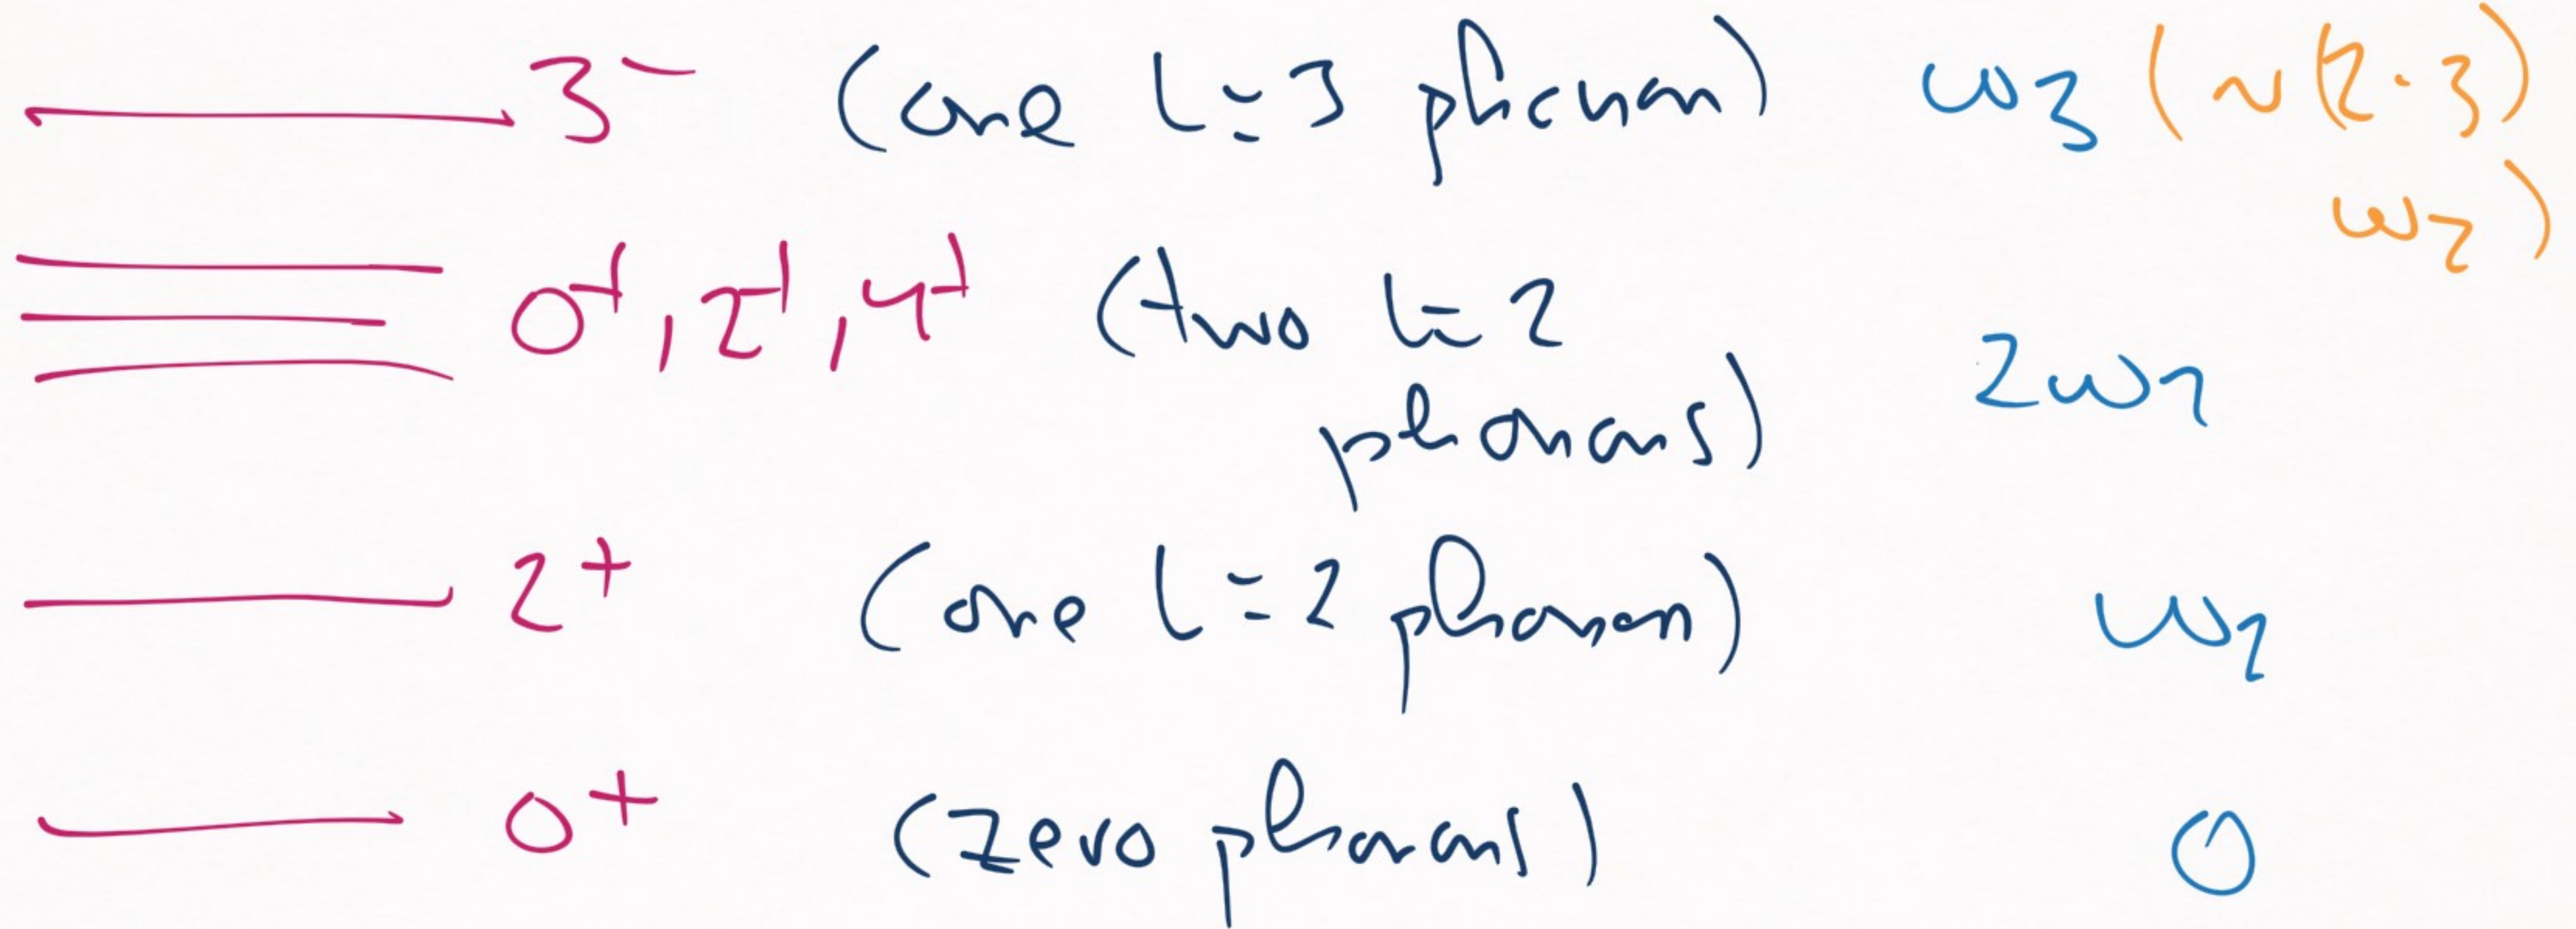 3⁻ (one l=3 phonon) ω₃ (~(2-3)
ω₂)
0⁺, 2⁺, 4⁺ (two l=2
phonons) 2ω₂
2⁺ (one l=2 phonon) ω₂
0⁺ (zero phonons) 0